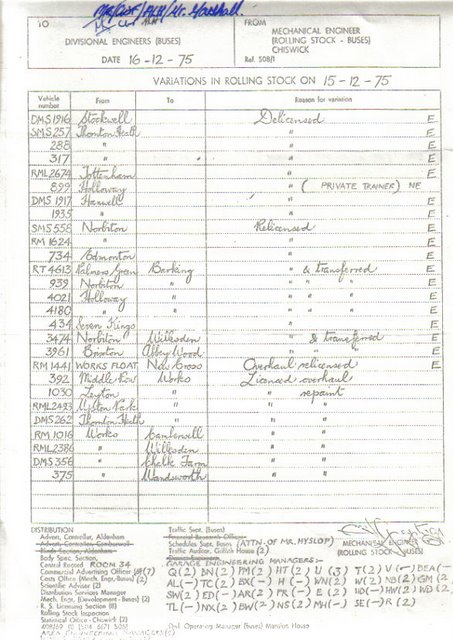 TO
DIVISIONAL ENGINEERS (BUSES)
DATE 16-12-75
FROM
MECHANICAL ENGINEER
(ROLLING STOCK - BUSES)
CHISWICK
Ref. 508/1
VARIATIONS IN ROLLING STOCK ON 15-12-75
Vehicle number From To Reason for variation
DMS 1916 Stockwell Delicensed E
SMS 257 Thornton Heath " E
288 " " E
317 " " E
RML 2674 Tottenham " E
899 Holloway " (PRIVATE TRAINER) NE
DMS 1917 Hanwell " E
1935 " " E
SMS 558 Norbiton Relicensed E
RM 1624 " " E
734 Edmonton " E
RT 4613 Palmers Green Barking " & transferred E
939 Norbiton " " " " E
4021 Holloway " " " " E
4180 " " " " " E
434 Seven Kings " E
3474 Norbiton Willesden " & transferred E
3961 Brixton Abbey Wood " " " E
RM 1441 WORKS FLOAT New Cross Overhaul relicensed E
392 Middle Row Works Licensed overhaul
1030 Leyton " " repaint
RML 2493 Upton Park " " "
DMS 262 Thornton Heath " " "
RM 1016 Works Camberwell " "
RML 2386 " Willesden " "
DMS 356 " Chalk Farm " "
375 " Wandsworth " "
DISTRIBUTION
Advert. Controller, Aldenham
Body Spec. Section,
Central Record ROOM 34
Commercial Advertising Officer (7)
Costs Office (Mech. Engr. Buses) (2)
Scientific Adviser (2)
Distribution Services Manager
Mech. Engr. (Development - Buses) (2)
R. S. Licensing Section (8)
Rolling Stock Inspection
Statistical Office - Chiswick (2)
Traffic Supt. (Buses)
Schedules Supt. (Buses) (ATTN. OF MR. HYSLOP)
Traffic Auditor, Griffith House (2)
MECHANICAL ENGINEER
(ROLLING STOCK - BUSES)
GARAGE ENGINEERING MANAGERS:-
Operating Manager (Buses) Mansion House
AREA ENGINEERING MANAGERS